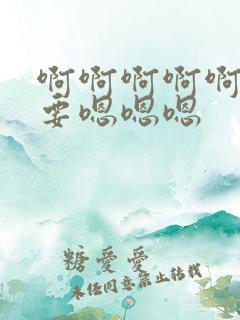 啊啊啊啊啊
要嗯嗯嗯
糖爱爱
未经同意禁止转载